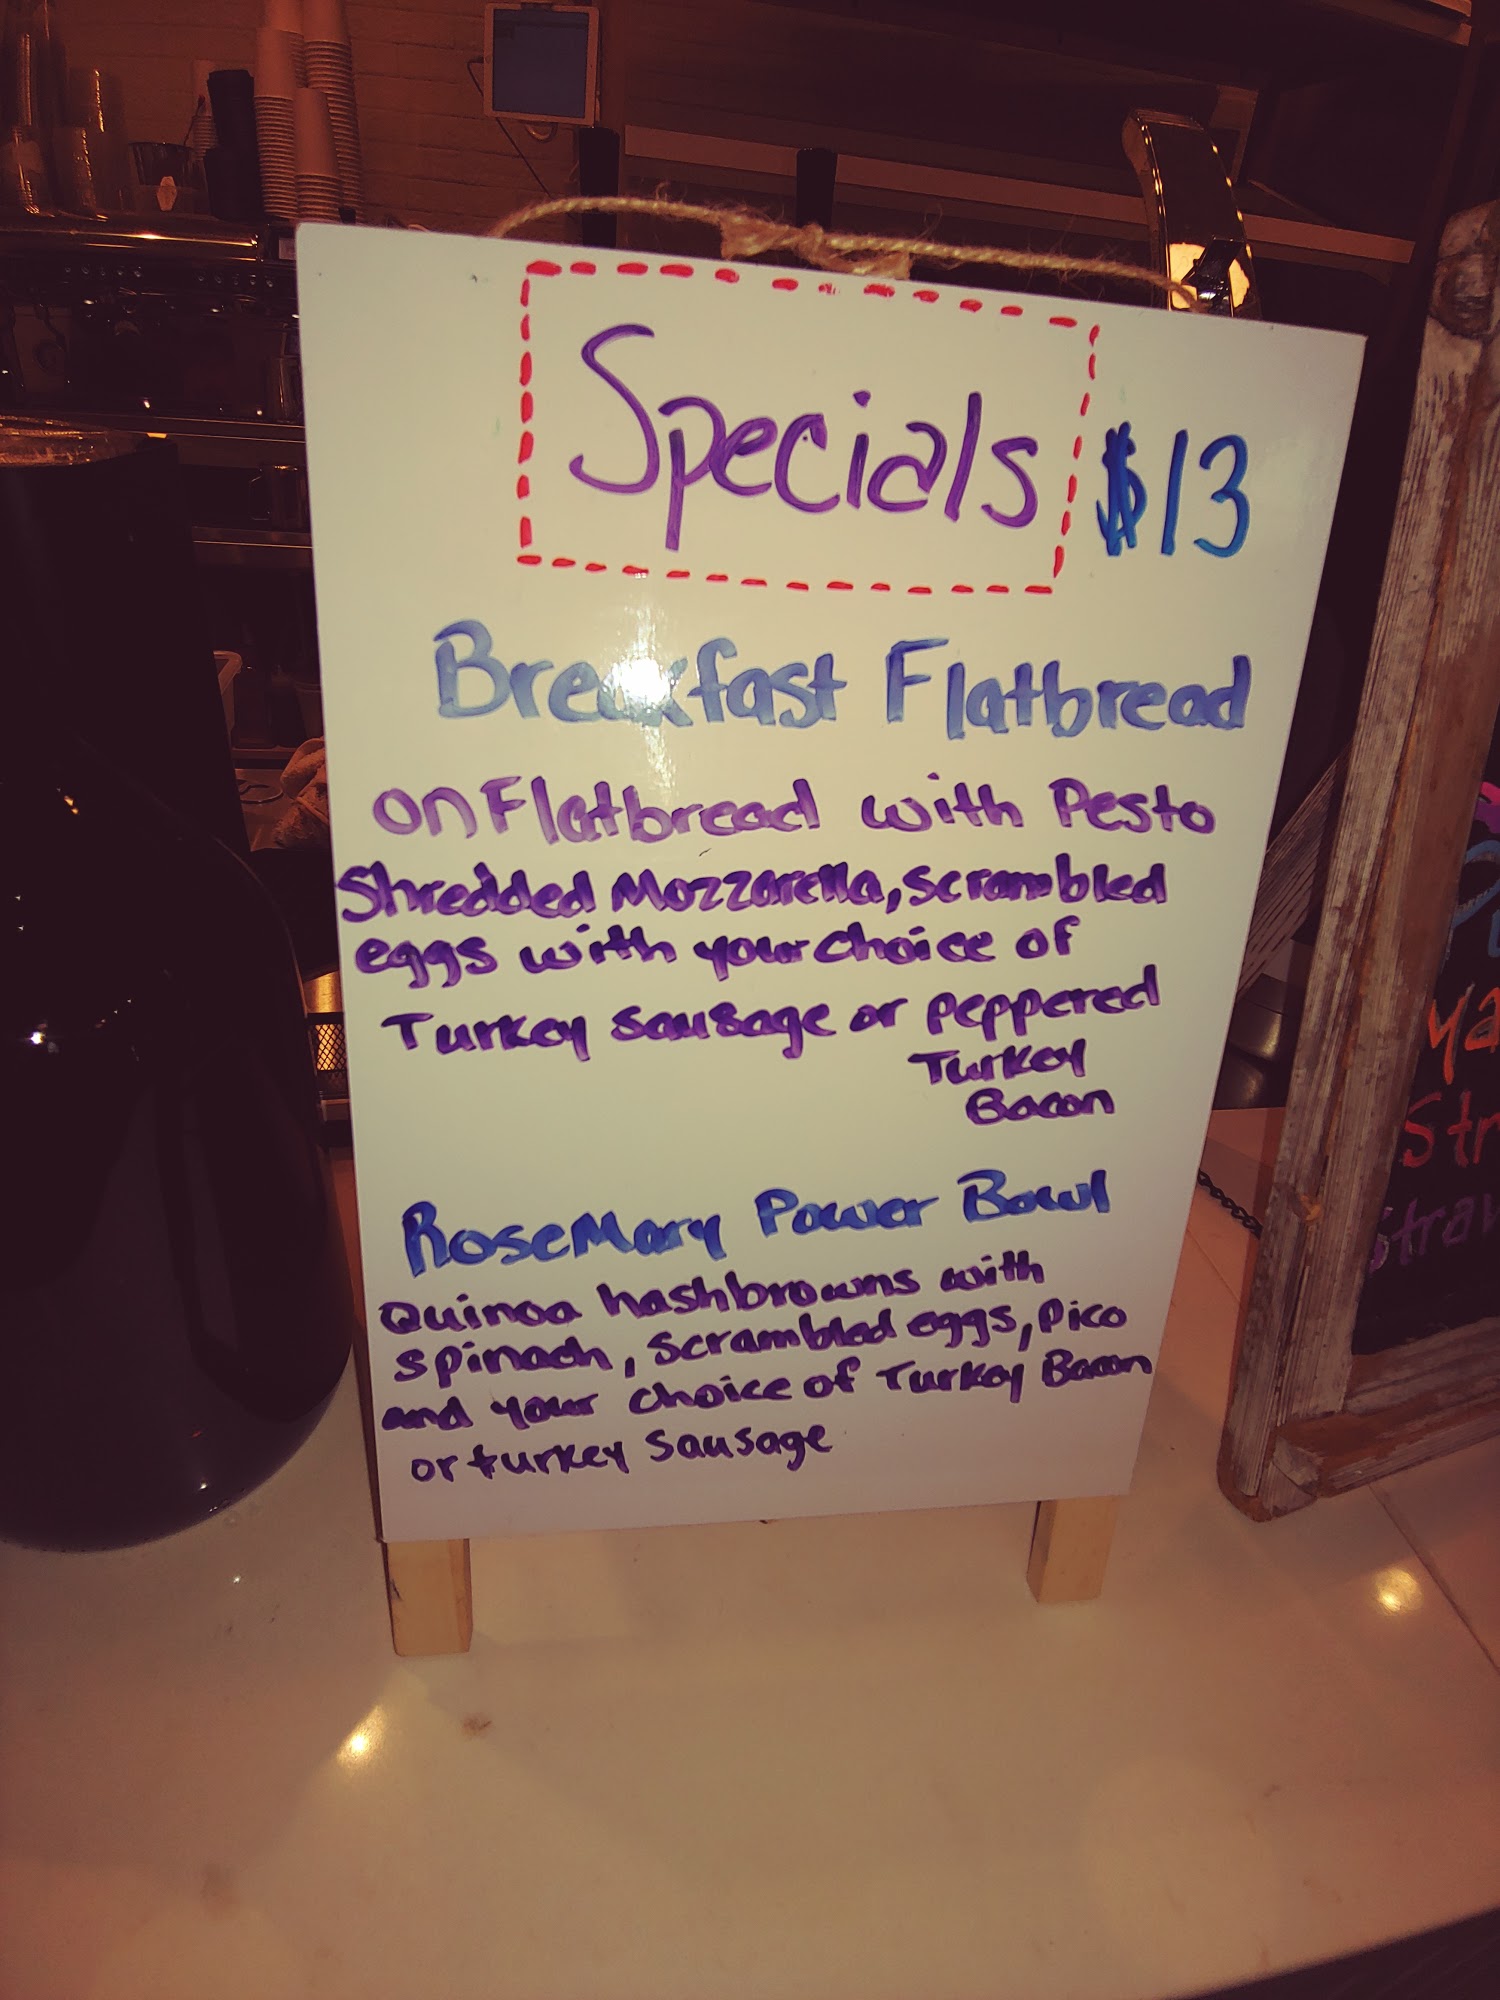 Specials $13
Breakfast Flatbread
on Flatbread with Pesto
Shredded Mozzarella, scrambled
eggs with your choice of
Turkey sausage or peppered
Turkey
Bacon
RoseMary Power Bowl
Quinoa hashbrowns with
spinach, scrambled eggs, pico
and your choice of Turkey Bacon
or turkey sausage